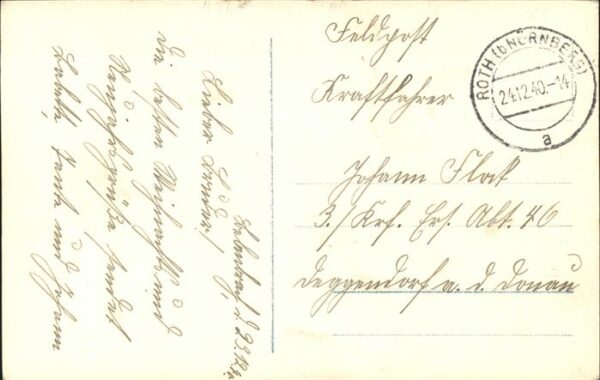 Feldpost
Kraftfahrer
Johann Flok
3./Krf. Ers. Abt. 46
Deggendorf a. d. Donau
ROTH (b NÜRNBERG)
24.12.40.-14
a
d. 23.12.
Lieber
die besten Weihnachts und
Neujahrsgrüße sendet
Tante und Johann